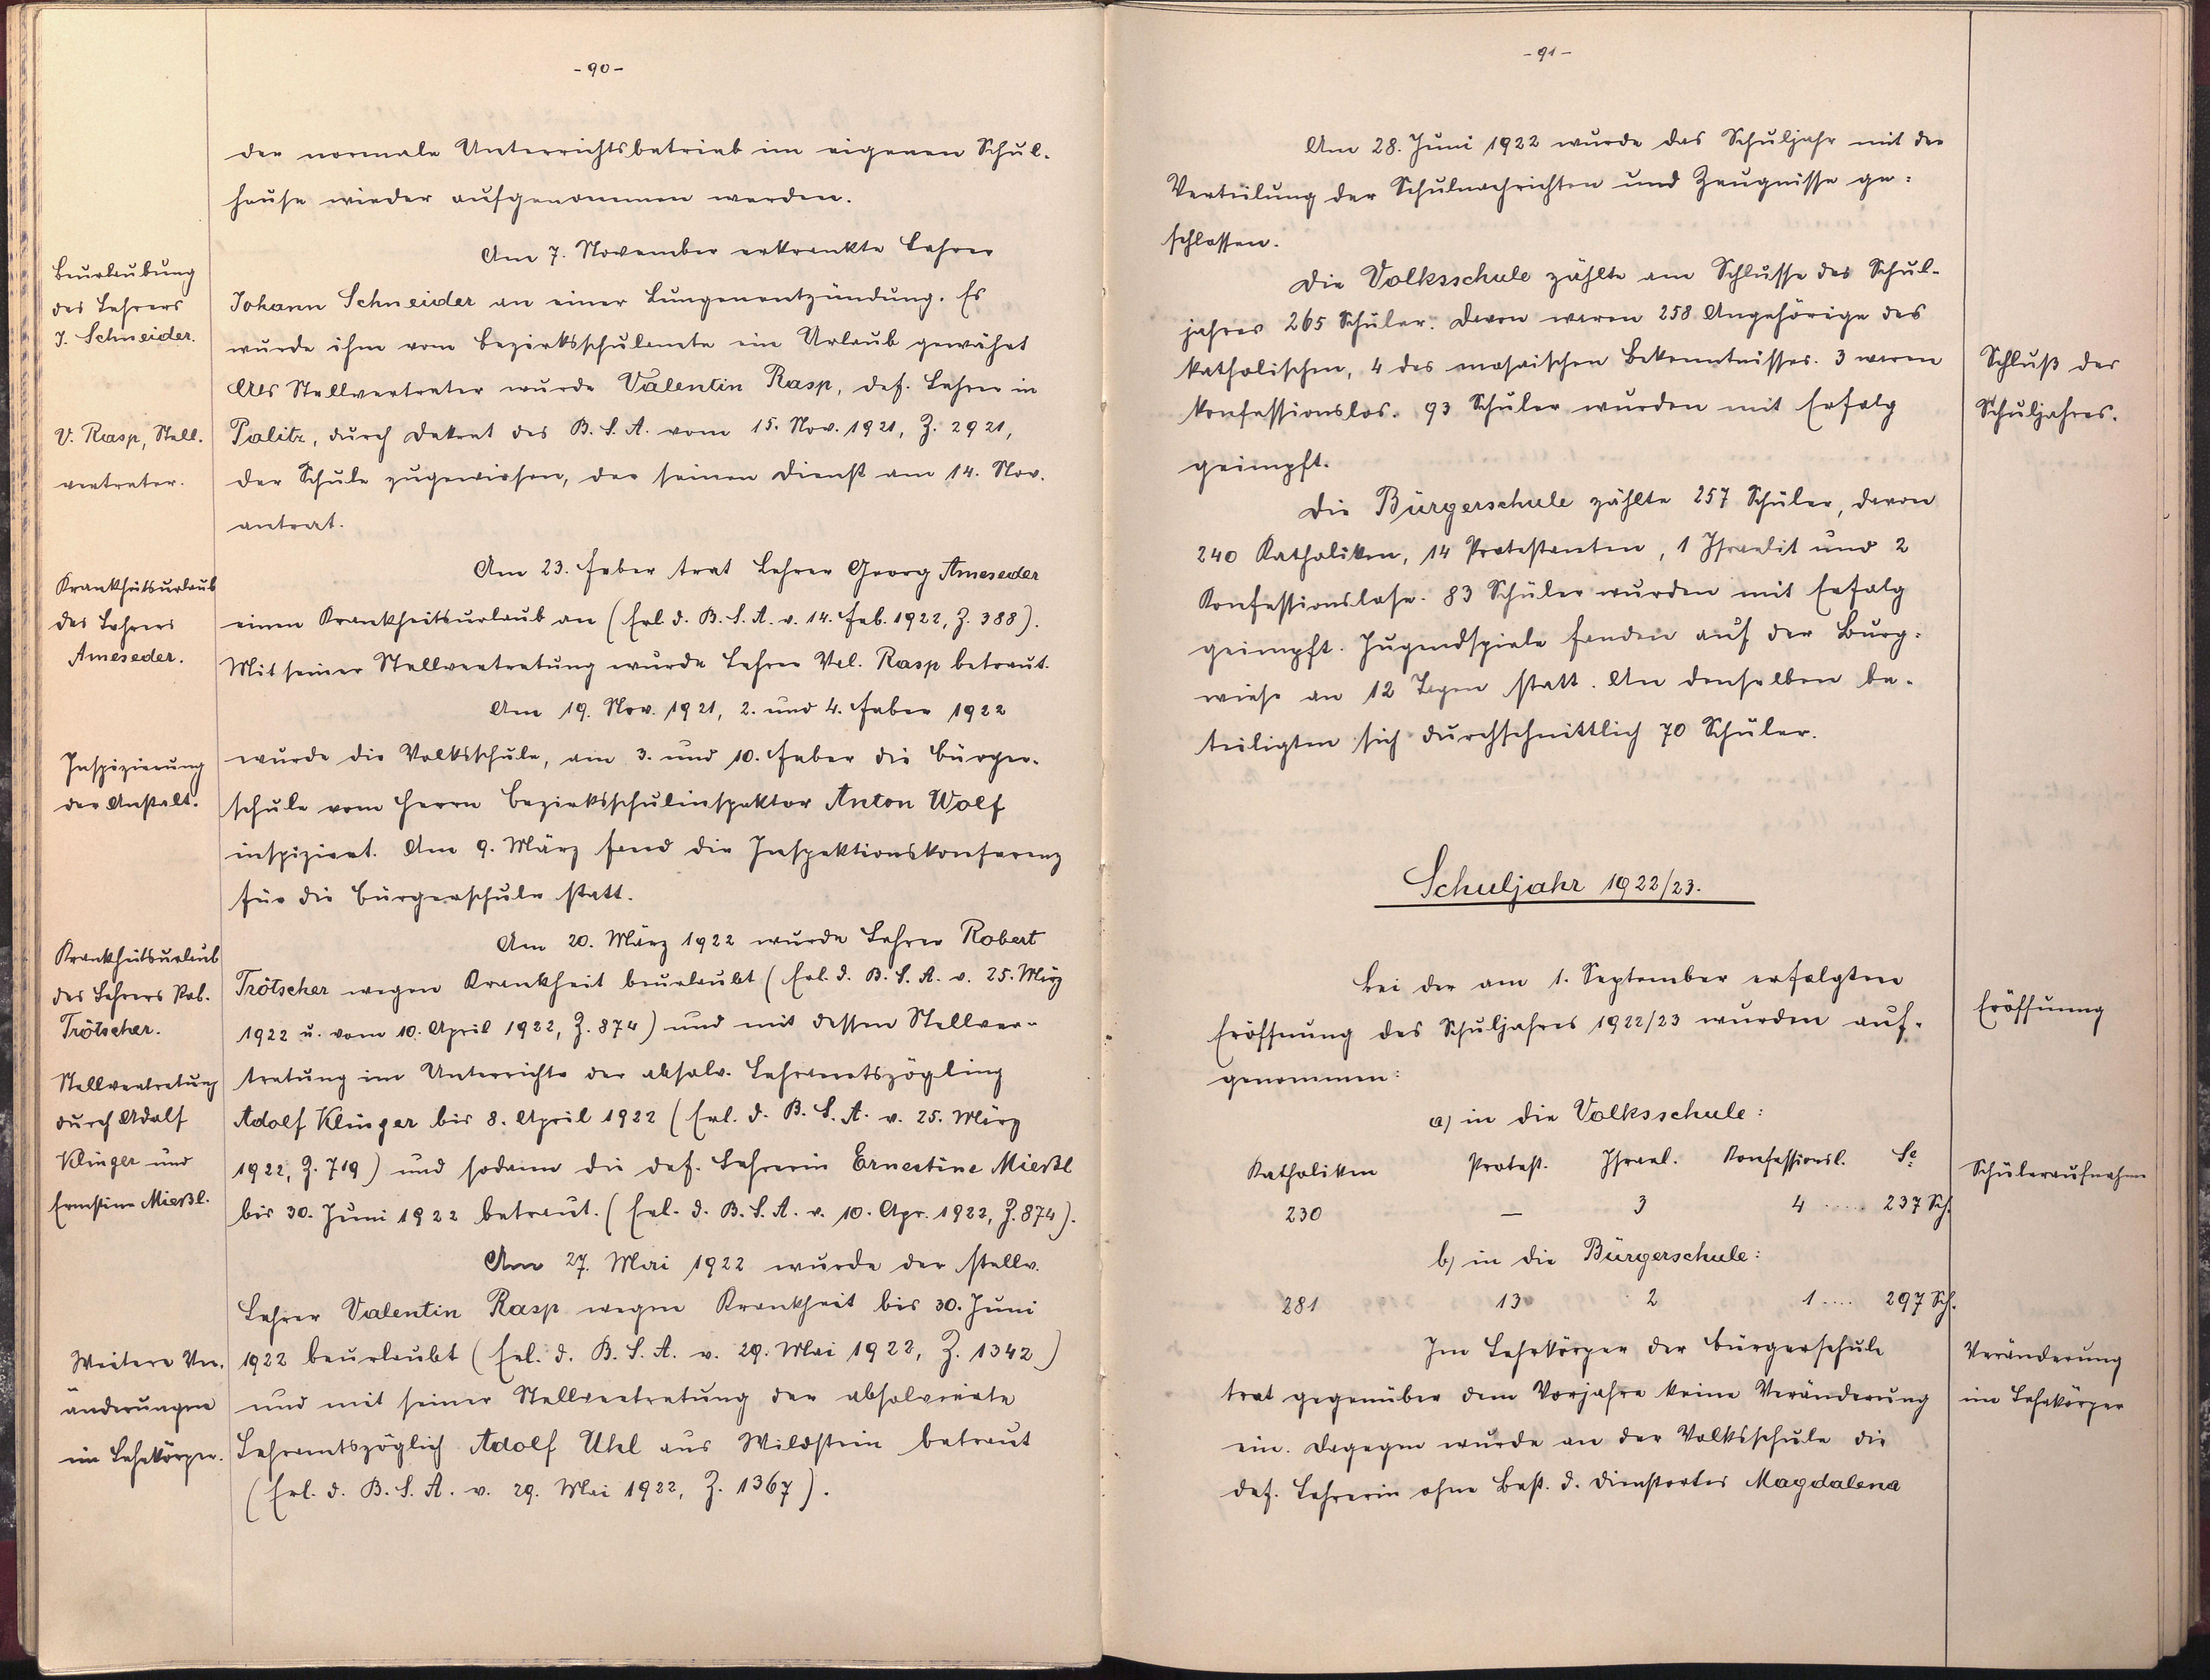 - 90 -
der normale Unterrichtsbetrieb im eigenen Schul-
hause wieder aufgenommen werden.
Beurlaubung
des Lehrers
J. Schneider.
Am 7. November erkrankte Lehrer
Johann Schneider an einer Lungenentzündung. Es
wurde ihm vom Bezirksschulamte ein Urlaub gewährt
Als Stellvertreter wurde Valentin Rasp, def. Lehrer in
V. Rasp, Stell-
vertreter.
Palitz, durch Dekret des B. S. A. vom 15. Nov. 1921, Z. 2921,
der Schule zugewiesen, der seinen Dienst am 14. Nov.
antrat.
Krankheitsurlaub
des Lehrers
Ameseder.
Am 23. Feber trat Lehrer Georg Ameseder
einen Krankheitsurlaub an (Erl d. B. S. A. v. 14. Feb. 1922, Z. 388).
Mit seiner Stellvertretung wurde Lehrer Val. Rasp betraut.
Am 19. Nov. 1921, 2. und 4. Feber 1922
Inspizierung
der Anstalt.
wurde die Volksschule, am 3. und 10. Feber die Bürger-
schule vom Herrn Bezirksschulinspektor Anton Wolf
inspiziert. Am 9. März fand die Inspektionskonferenz
für die Bürgerschule statt.
Krankheitsurlaub
des Lehrers Rob.
Trötscher.
Am 20. März 1922 wurde Lehrer Robert
Trötscher wegen Krankheit beurlaubt (Erl. d. B. S. A. v. 25. März
1922 u. vom 10. April 1922, Z. 874) und mit dessen Stellver-
Stellvertretung
durch Adolf
Klinger und
Ernestine Mießl.
tretung im Unterrichte der absolv. Lehramtszögling
Adolf Klinger bis 8. April 1922 (Erl. d. B. S. A. v. 25. März
1922, Z. 719) und sodann die def. Lehrerin Ernestine Mießl
bis 30. Juni 1922 betraut. (Erl. d. B. S. A. v. 10. Apr. 1922, Z. 874).
Am 27. Mai 1922 wurde der stellv.
Lehrer Valentin Rasp wegen Krankheit bis 30. Juni
Weitere Ver-
änderungen
im Lehrkörper.
1922 beurlaubt (Erl. d. B. S. A. v. 29. Mai 1922, Z. 1342)
und mit seiner Stellvertretung der absolvierte
Lehramtszöglich Adolf Uhl aus Wildstein betraut
(Erl. d. B. S. A. v. 29. Mai 1922, Z. 1367).
- 91 -
Am 28. Juni 1922 wurde das Schuljahr mit der
Verteilung der Schulnachrichten und Zeugnisse ge-
schlossen.
Die Volksschule zählte am Schlusse des Schul-
jahres 265 Schüler. Davon waren 258 Angehörige des
katholischen, 4 des mosaischen Bekenntnisses. 3 waren
konfessionslos. 93 Schüler wurden mit Erfolg
geimpft.
Schluß des
Schuljahres.
Die Bürgerschule zählte 257 Schüler, davon
240 Katholiken, 14 Protestanten, 1 Israelit und 2
Konfessionslose. 83 Schüler wurden mit Erfolg
geimpft. Jugendspiele fanden auf der Burg-
wiese an 12 Tagen statt. An denselben be-
teiligten sich durchschnittlich 70 Schüler.
Schuljahr 1922/23.
Bei der am 1. September erfolgten
Eröffnung des Schuljahres 1922/23 wurden auf-
genommen:
Eröffnung
a) in die Volksschule:
Katholiken Protest. Israel. Konfessionsl. Se
230 — 3 4 ..... 237 Sch.
Schüleraufnahme
b) in die Bürgerschule:
281 13 2 1 .... 297 Sch.
Im Lehrkörper der Bürgerschule
trat gegenüber dem Vorjahre keine Veränderung
ein. Dagegen wurde an der Volksschule die
def. Lehrerin ohne Best. d. Dienstortes Magdalena
Veränderung
im Lehrkörper